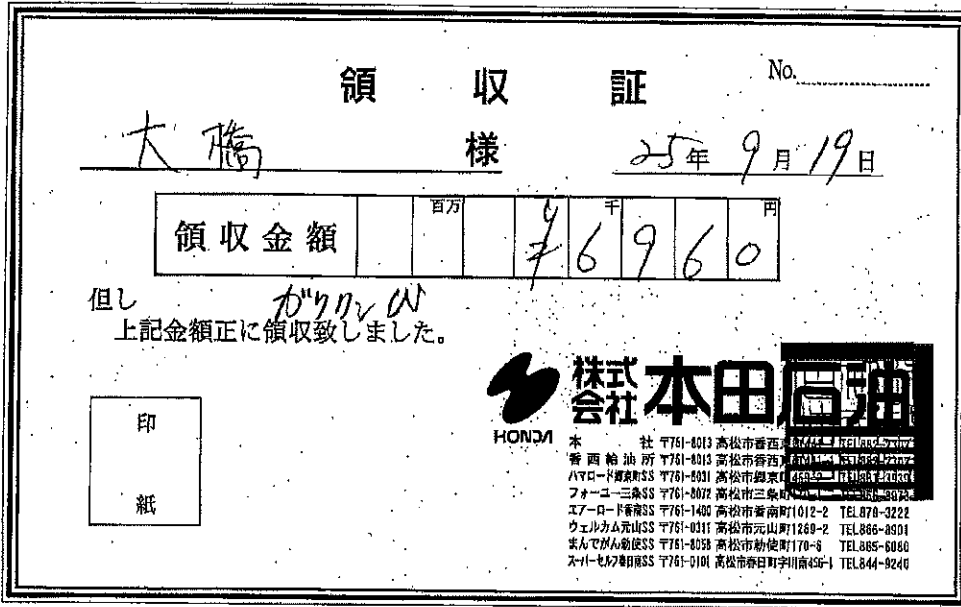 領収証
No.
大橋 様
25年 9月 19日
百万 千 円
領収金額 ¥6960
但し ガソリン代
上記金額正に領収致しました。
印
紙
HONDA
株式会社 本田石油
本社 〒761-8013 高松市香西
香西給油所 〒761-8013 高松市香西
ハマロード郷東町SS 〒761-8031 高松市郷東
フォーユー三条SS 〒761-8072 高松市三条町
エアーロード香南SS 〒761-1400 高松市香南町1012-2 TEL879-3222
ウェルカム元山SS 〒761-0311 高松市元山町1269-2 TEL866-8901
まんでがん勅使SS 〒761-8058 高松市勅使町170-6 TEL865-6080
スーパーセルフ春日南SS 〒761-0101 高松市春日町字川南456-1 TEL844-9240